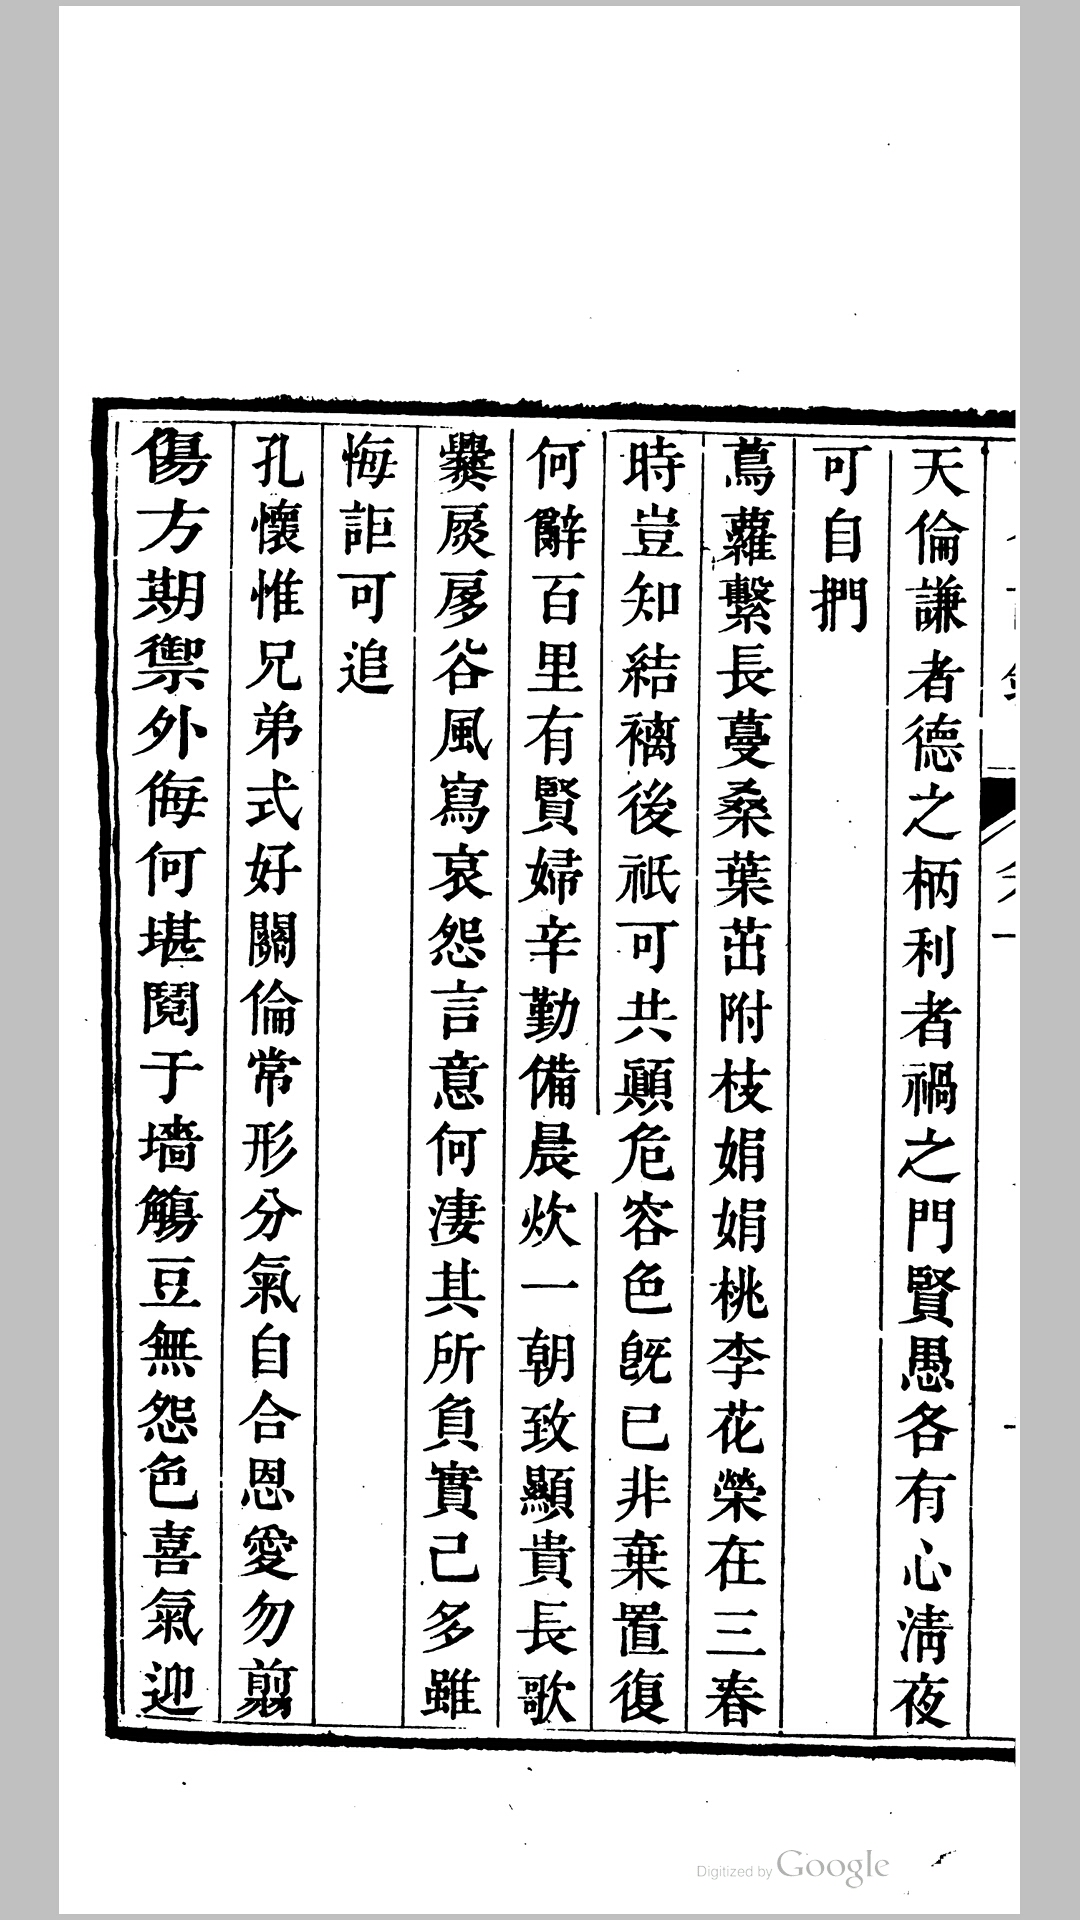 天倫謙者德之柄利者禍之門賢愚各有心淸夜
可自捫
蔦蘿繫長蔓桑葉茁附枝娟娟桃李花榮在三春
時豈知結褵後祇可共顚危容色旣已非棄置復
何辭百里有賢婦辛勤備晨炊一朝致顯貴長歌
爨扊扅谷風寫哀怨言意何淒其所負實己多雖
悔詎可追
孔懷惟兄弟式好關倫常形分氣自合恩愛勿翦
傷方期禦外侮何堪鬩于墻觴豆無怨色喜氣迎
Digitized by Google